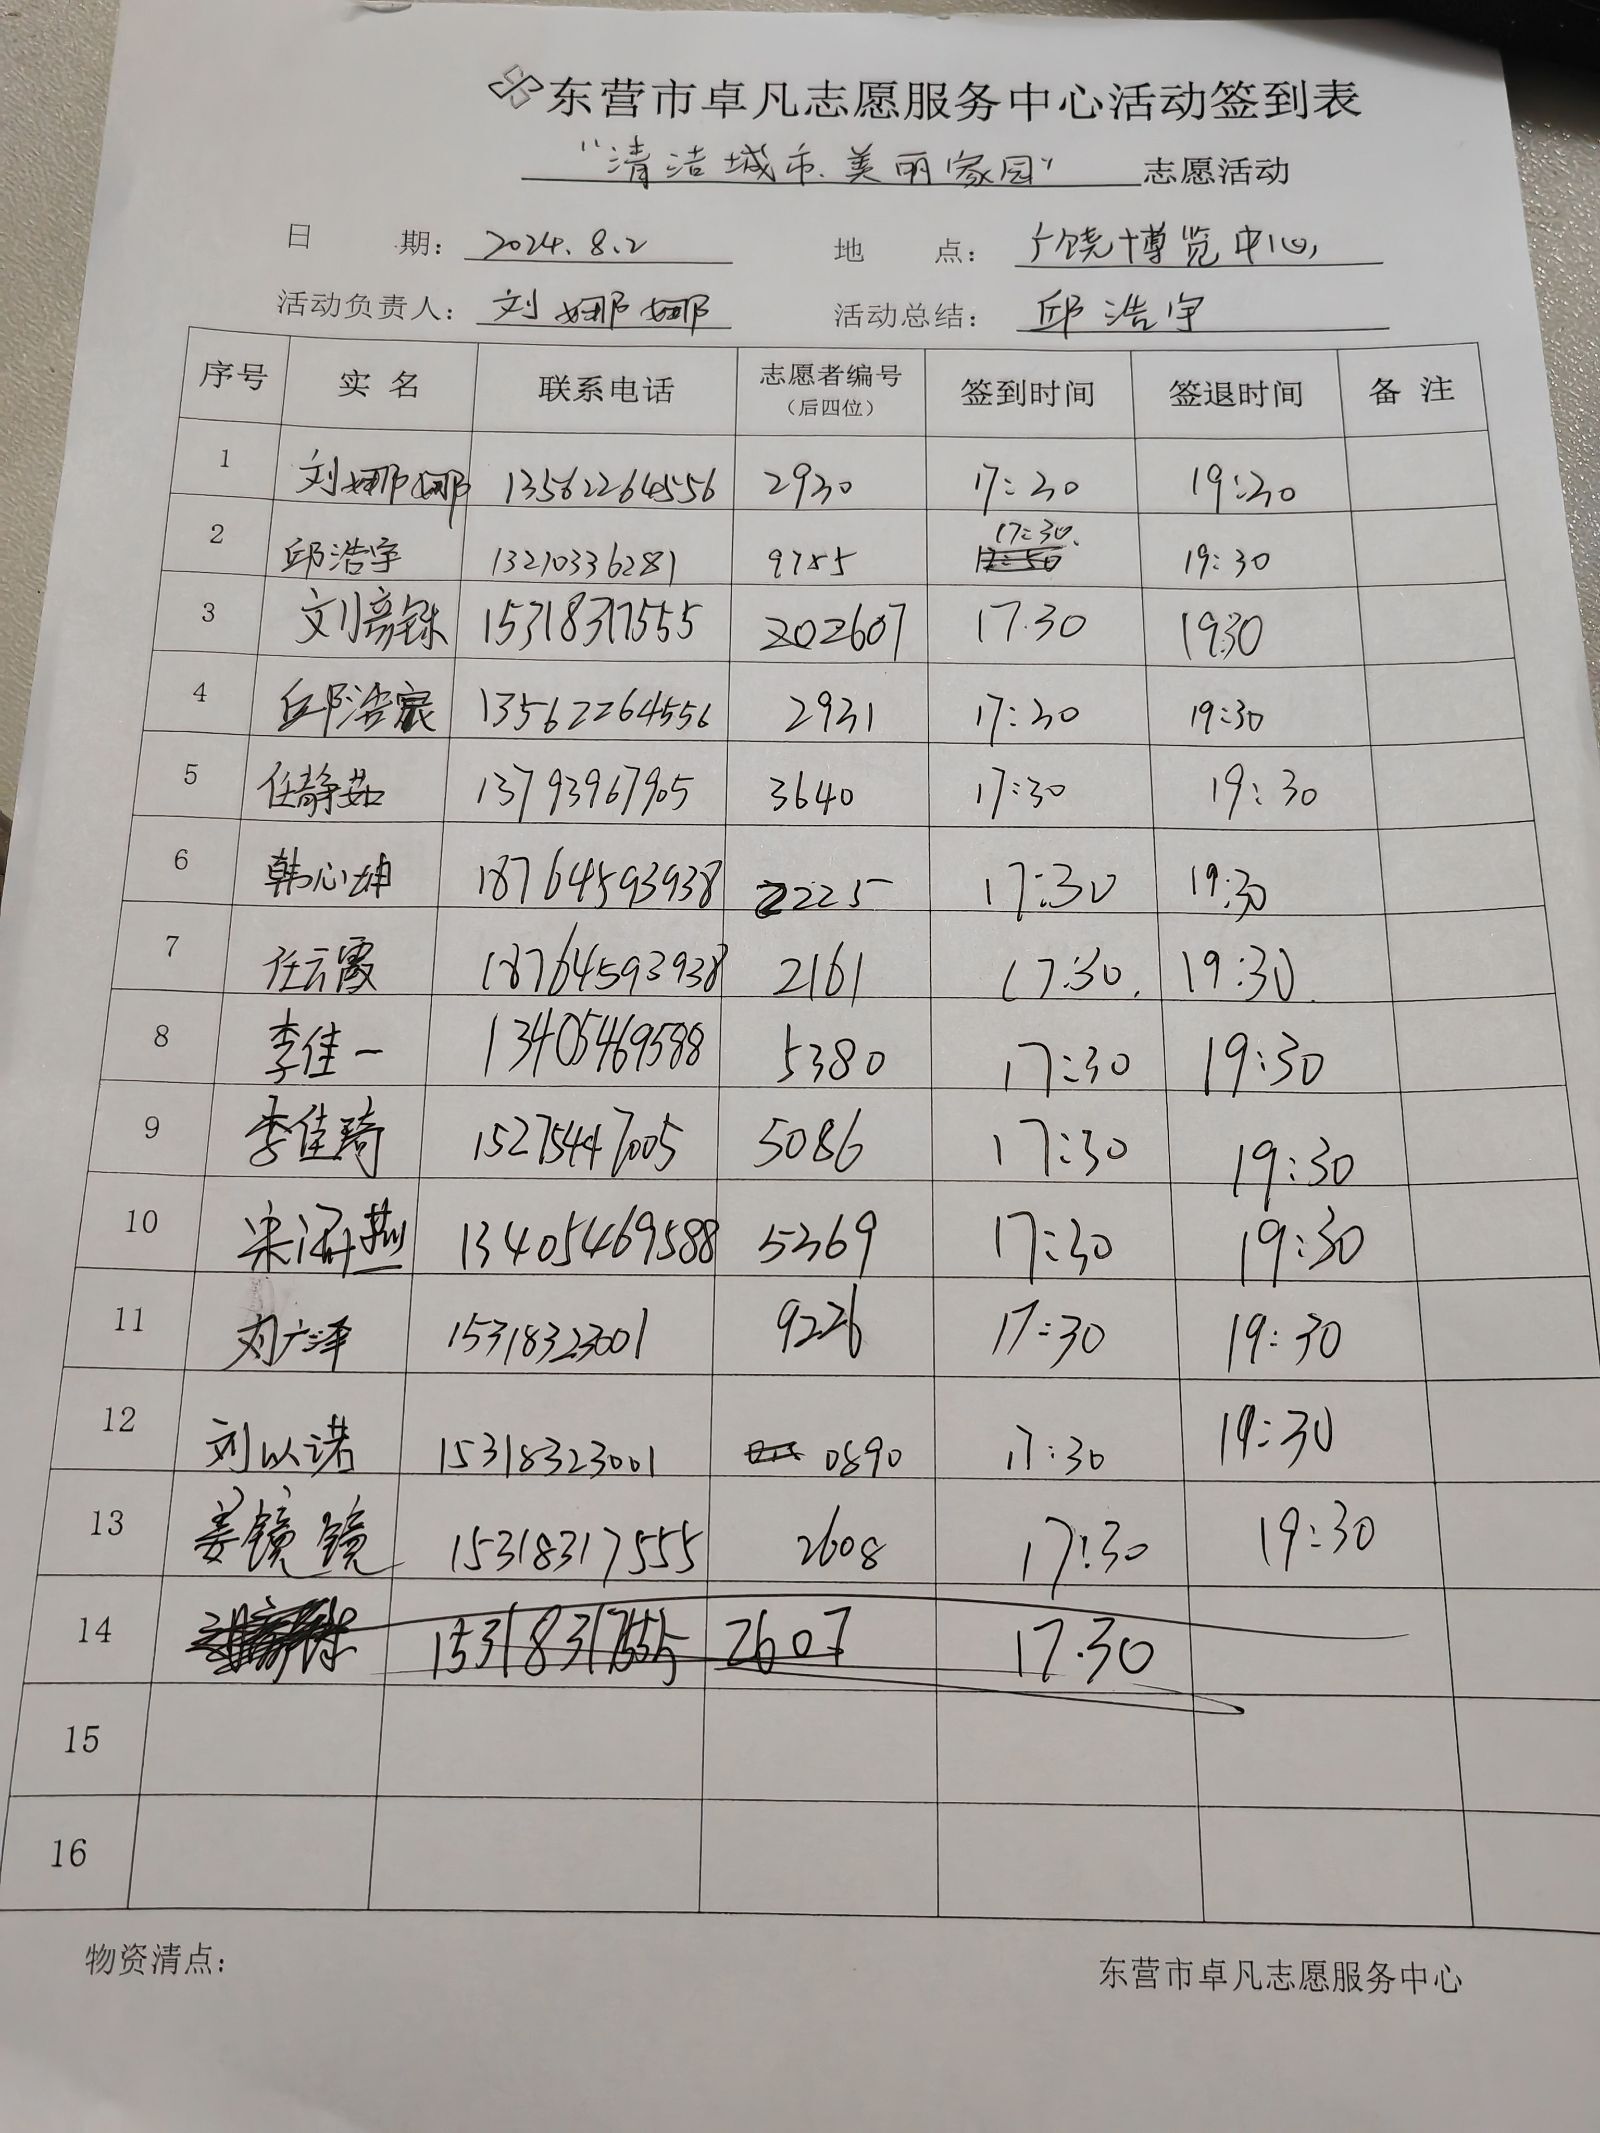 东营市卓凡志愿服务中心活动签到表
“清洁城市、美丽家园” 志愿活动
日 期： 2024.8.2 地 点： 广饶博览中心
活动负责人： 刘娜娜 活动总结： 邱浩宇
序号 实 名 联系电话 志愿者编号（后四位） 签到时间 签退时间 备 注
1 刘娜娜 13562264556 2930 17:30 19:30
2 邱浩宇 13210336281 9785 17:30 19:30
3 刘 15318317555 202607 17.30 19:30
4 邱浩宸 13562264556 2931 17:30 19:30
5 任静茹 13793967905 3640 17:30 19:30
6 韩心坤 18764593938 2225 17:30 19:30
7 任云霞 18764593938 2161 17:30. 19:30.
8 李佳一 13405469588 5380 17:30 19:30
9 李佳琦 15275447005 5086 17:30 19:30
10 宋 燕 13405469588 5369 17:30 19:30
11 刘广泽 15318323001 9226 17:30 19:30
12 刘以诺 15318323001 0890 17:30 19:30
13 姜镜镜 15318317555 2608 17:30 19:30
14 15318317555 2607 17.30
15
16
物资清点： 东营市卓凡志愿服务中心